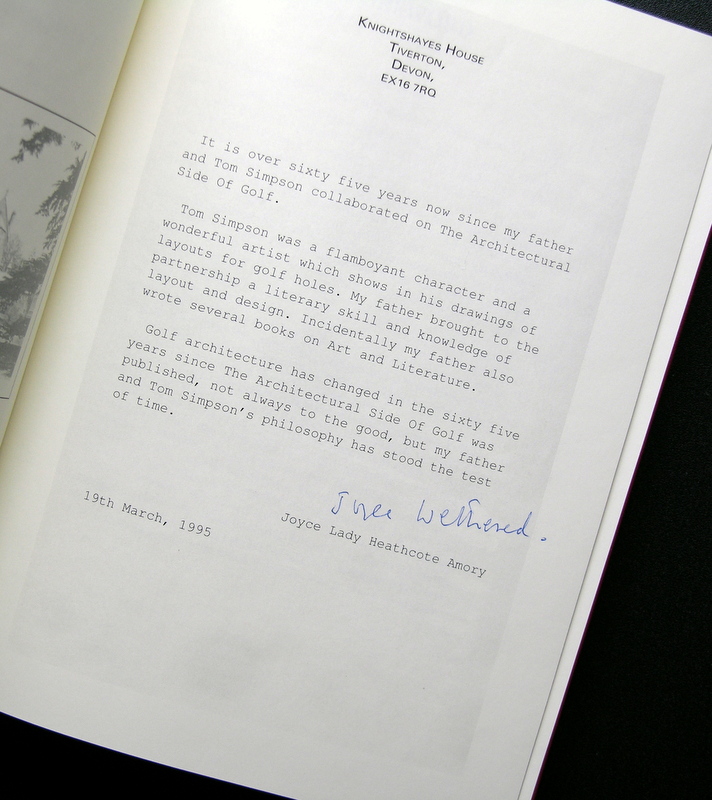 KNIGHTSHAYES HOUSE
TIVERTON,
DEVON,
EX16 7RQ
It is over sixty five years now since my father
and Tom Simpson collaborated on The Architectural
Side Of Golf.
Tom Simpson was a flamboyant character and a
wonderful artist which shows in his drawings of
layouts for golf holes. My father brought to the
partnership a literary skill and knowledge of
layout and design. Incidentally my father also
wrote several books on Art and Literature.
Golf architecture has changed in the sixty five
years since The Architectural Side Of Golf was
published, not always to the good, but my father
and Tom Simpson's philosophy has stood the test
of time.
Joyce Wethered.
19th March, 1995
Joyce Lady Heathcote Amory